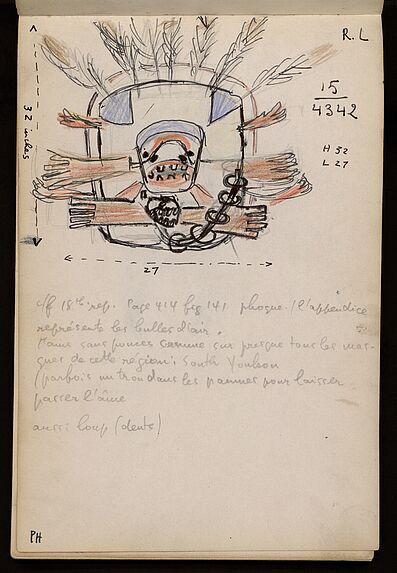 R.L
15
4342
32 inches
H 32
L 27
27
cff 18th rep. Page 414 fig 141 phoque. / l'appendice
représente les bulles d'air.
Mains sans pouces comme sur presque tous les mas-
ques de cette région: South Youkon
(parfois un trou dans les paumes pour laisser
passer l'âme
aussi loup (dents)
PH